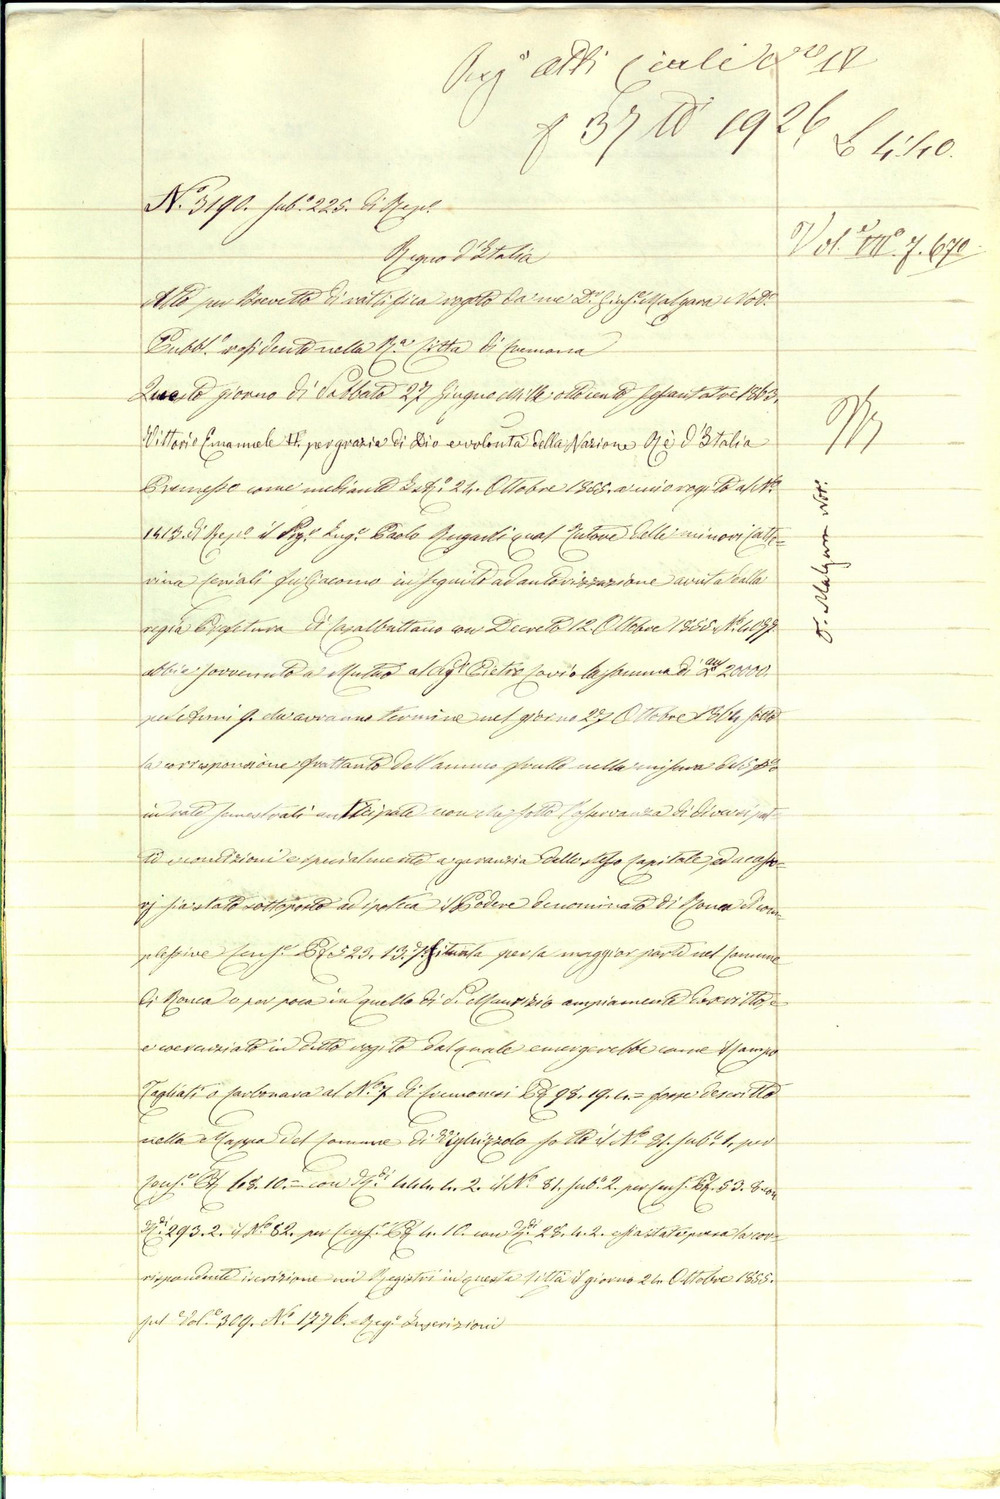 Reg° atti civili N° IV
f 37 N° 1926 £ 4:40.
N.° 3190. sub.° 225. di Rep.°
Vol.e VII.° f. 670
Regno d'Italia
Atto per Brevetto di rattifica rogato da me D.r Giusp. Malgara Not.°
Pubbl.° residente nella R.a Città di Cremona
Questo giorno di Sabbato 27 Giugno mille ottocento sessantatre 1863.
Vittorio Emanuele II. per grazia di Dio e volontà della Nazione Rè d'Italia
Premesso come mediante Istr.° 24. Ottobre 1855. a mio rogito al N.°
1413. di Rep.° il Sig.r Ing.r Paolo qual Tutore delli minori Catte=
rina Geniali fu Giacomo in seguito ad autorizzazione avuta dalla
regia Pretura di Casalbuttano con Decreto 12 Ottobre 1855 N.° 4037
abbia sovvenuto a Mutuo al Sig.r Pietro la somma di aus L. 20000.
per anni 9. che avranno termine nel giorno 24 Ottobre 1864 sotto
la corresponsione frattanto dell'annuo frutto nella misura del 5 p%
in rate semestrali anticipate non che sotto l'osservanza di diversi pat-
ti e condizioni e specialmente a garanzia dello stesso Capitale ed accesso=
rj sia stato sottoposto ad ipoteca il Podere denominato di Ronca di com-
plessive Cens.e P.e 523. 13. 7. situata per la maggior parte nel Comune
di Ronca e per poca in quello di S. Maurizio ampiamente descritto, e
e coerenziato in detto rogito dal quale emergerebbe come il Campo
Tagliati o Carbonara al N.° 7 di Cremonesi P.e 98. 19. 4.= fosse descritto
nella Mappa del Comune di Ghighizzolo sotto il N.° 81. sub.° 1. per
Cens.e P.e 48. 10.= con 444. 4. 2. il N.° 81. sub.° 2. per Cens.e P.e 53. 8 con
293. 2. il N.° 82. per Cens.e P.e 4. 10. con 28. 4. 2. e sia stata presa la cor-
rispondente iscrizione nei Registri in questa Città il giorno 24 Ottobre 1855.
sul Vol.e 309. N.° 1776. Reg.° Inscrizioni
F. Malgara Not.°